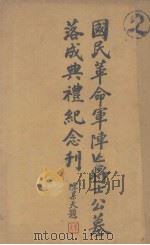 國民革命軍陣亡將士公墓
落成典禮紀念刊
陳果夫題
②